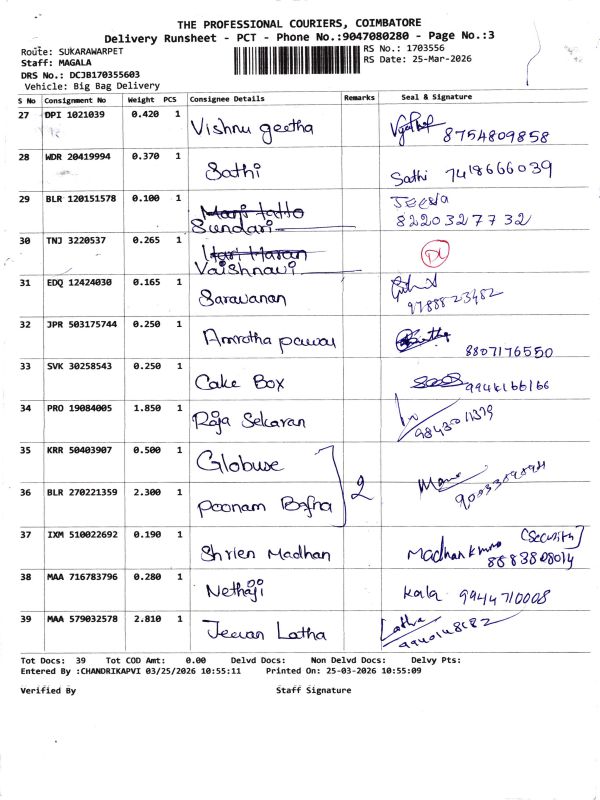 THE PROFESSIONAL COURIERS, COIMBATORE
Delivery Runsheet - PCT - Phone No.:9047080280 - Page No.:3
Route: SUKARAWARPET
RS No.: 1703556
Staff: MAGALA
RS Date: 25-Mar-2026
DRS No.: DCJB170355603
Vehicle: Big Bag Delivery
S No Consignment No Weight PCS Consignee Details Remarks Seal & Signature
27 DPI 1021039 0.420 1 Vishnu geetha 8754809858
28 WDR 20419994 0.370 1 Sathi Sathi 7418666039
29 BLR 120151578 0.100 1 Manj tatto Jeeva
Sundari 8220327732
30 TNJ 3220537 0.265 1 Hari Haran
Vaishnavi
31 EDQ 12424030 0.165 1 Saravanan 9788823482
32 JPR 503175744 0.250 1 Amrotha pawar 8807176550
33 SVK 30258543 0.250 1 Cake Box 9946166166
34 PRO 19084005 1.850 1 Raja Sekaran
35 KRR 50403907 0.500 1 Globuse
2 Mano
36 BLR 270221359 2.300 1 Poonam Bafna
37 IXM 510022692 0.190 1 Shrien Madhan Madhan kumar (Security)
8883808014
38 MAA 716783796 0.280 1 Nethaji Kala 9944710008
39 MAA 579032578 2.810 1 Jeevan Latha Latha
9940148182
Tot Docs: 39 Tot COD Amt: 0.00 Delvd Docs: Non Delvd Docs: Delvy Pts:
Entered By :CHANDRIKAPVI 03/25/2026 10:55:11 Printed On: 25-03-2026 10:55:09
Verified By Staff Signature